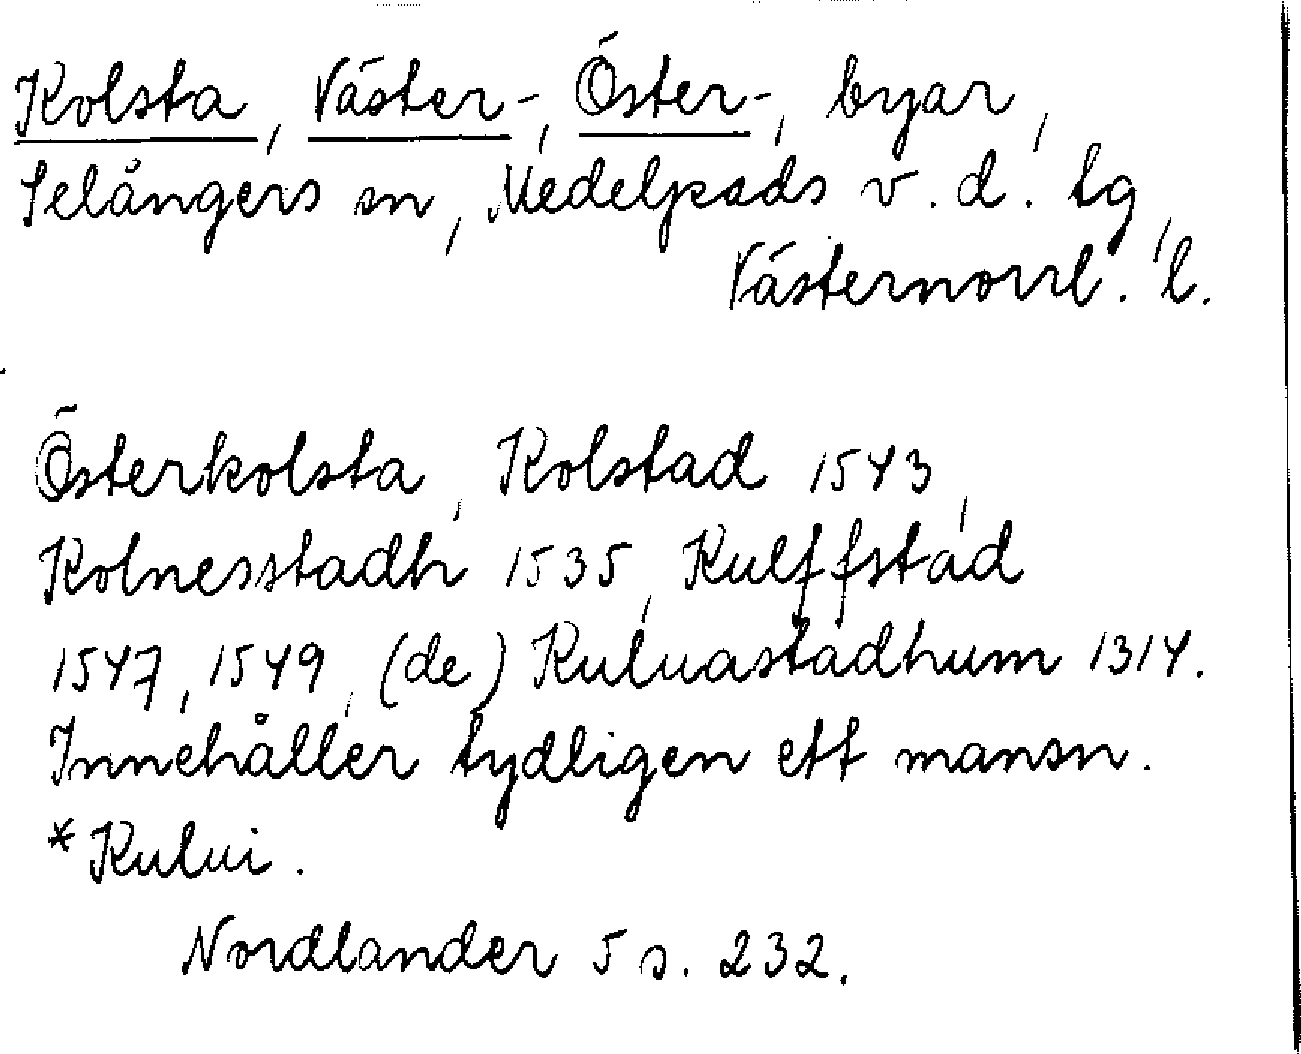 Kolsta, Väster-, Öster-, byar,
Selångers sn, Medelpads v. d. tg,
Västernorrl. l.
Österkolsta, Kolstad 1543,
Kolnesstadh 1535, Kulffstad
1547, 1549, (de) Kuluastadhum 1314.
Innehåller tydligen ett mansn.
*Kului.
Nordlander 5 s. 232.